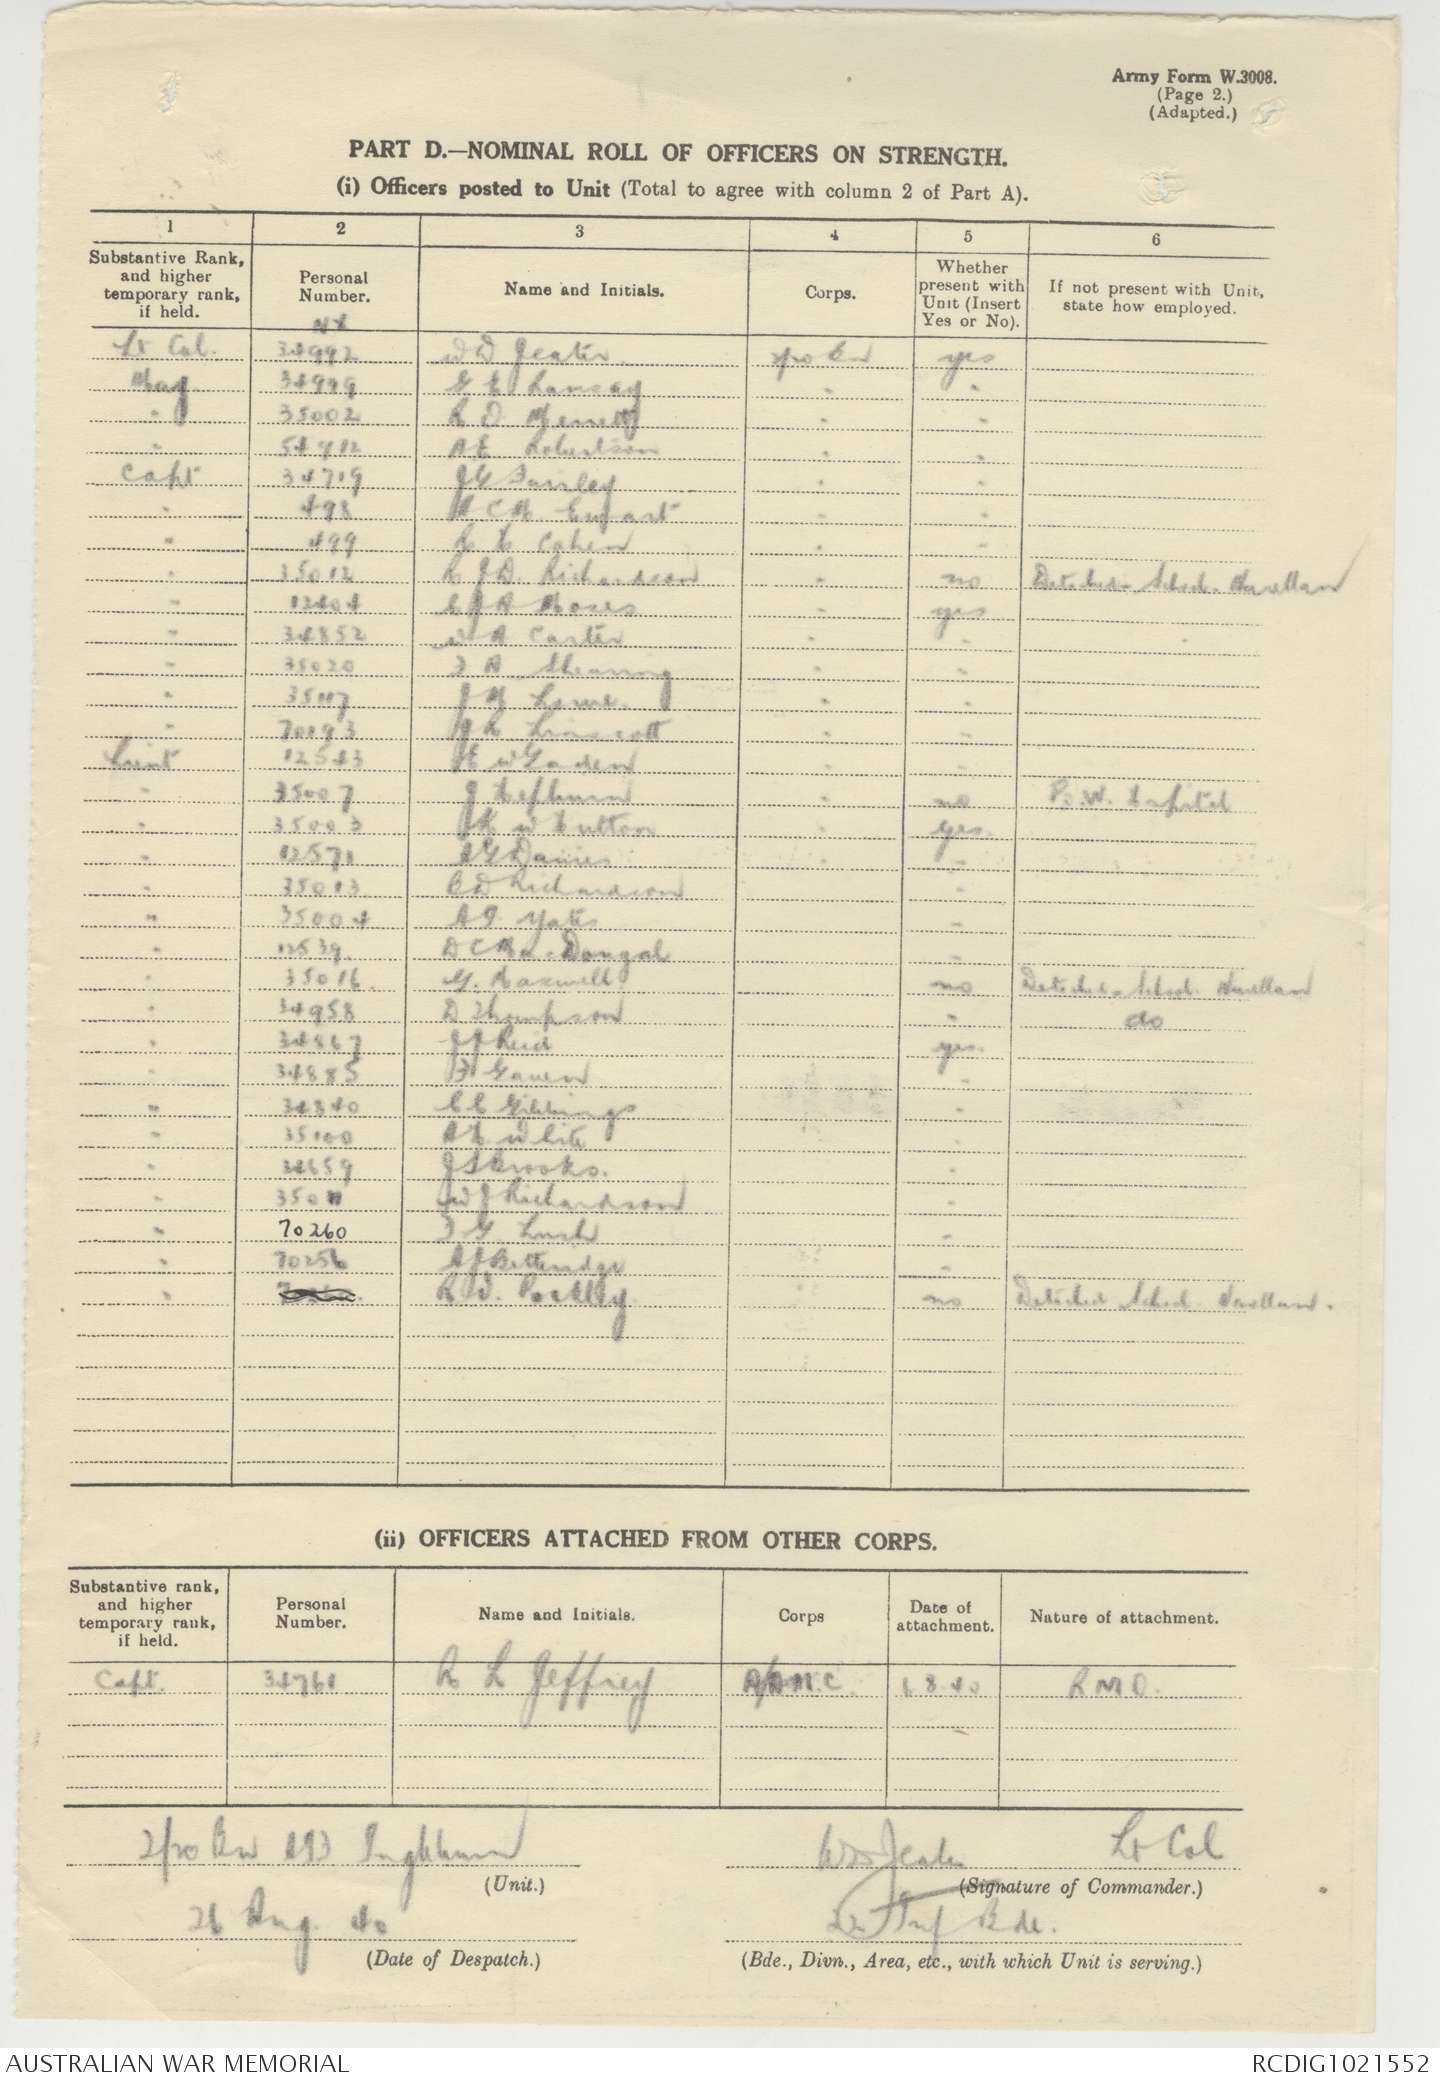 Army Form W.3008.
(Page 2.)
(Adapted.)
PART D.—NOMINAL ROLL OF OFFICERS ON STRENGTH.
(i) Officers posted to Unit (Total to agree with column 2 of Part A).
1 2 3 4 5 6
Substantive Rank, and higher temporary rank, if held. Personal Number. Name and Initials. Corps. Whether present with Unit (Insert Yes or No). If not present with Unit, state how employed.
NX
Lt Col. 34992 W D Jeater 2/20 Bn yes
Maj. 34999 G E Ramsay " "
" 35002 R D Merrett " "
" 54912 A E Robertson " "
Capt 34719 J G Fairley " "
" 498 A C M Ewart " "
" 499 R H Cohen " "
" 35012 R J D Richardson " no Detached School Narellan
" 12404 C J A Moses " yes
" 34852 W A Carter " "
" 35020 F A Shearing " "
" 35117 J M Lowe. " "
" 70193 A R Linscott " "
Lieut 12543 H E W Gaden " "
" 35007 J Hepburn " no P.W. Hospital
" 35003 J K W Hutton " yes.
" 12571 A G Davies " "
" 35013 C D Richardson "
" 35004 A F. Yates "
" 12539. D C MacDougal "
" 35016. G. Maxwell no Detached School Narellan
" 34958 D Thompson " do
" 34867 J J Reid yes.
" 34885 F Gaven "
" 34840 C C Gibbings "
" 35100 A H White "
" 34659 J S Brooks. "
" 35011 W J Richardson "
" 70260 F G Lush "
" 70256 A J Betteridge "
" R D. Pockley no Detached School Narellan.
(ii) OFFICERS ATTACHED FROM OTHER CORPS.
Substantive rank, and higher temporary rank, if held. Personal Number. Name and Initials. Corps Date of attachment. Nature of attachment.
Capt. 34761 R L Jeffrey A.A.M.C. 6 8 40 R M O.
2/20 Bn AIF Ingleburn W D Jeater Lt Col
(Unit.) (Signature of Commander.)
26 Aug. 40 22 Inf Bde.
(Date of Despatch.) (Bde., Divn., Area, etc., with which Unit is serving.)
AUSTRALIAN WAR MEMORIAL RCDIG1021552